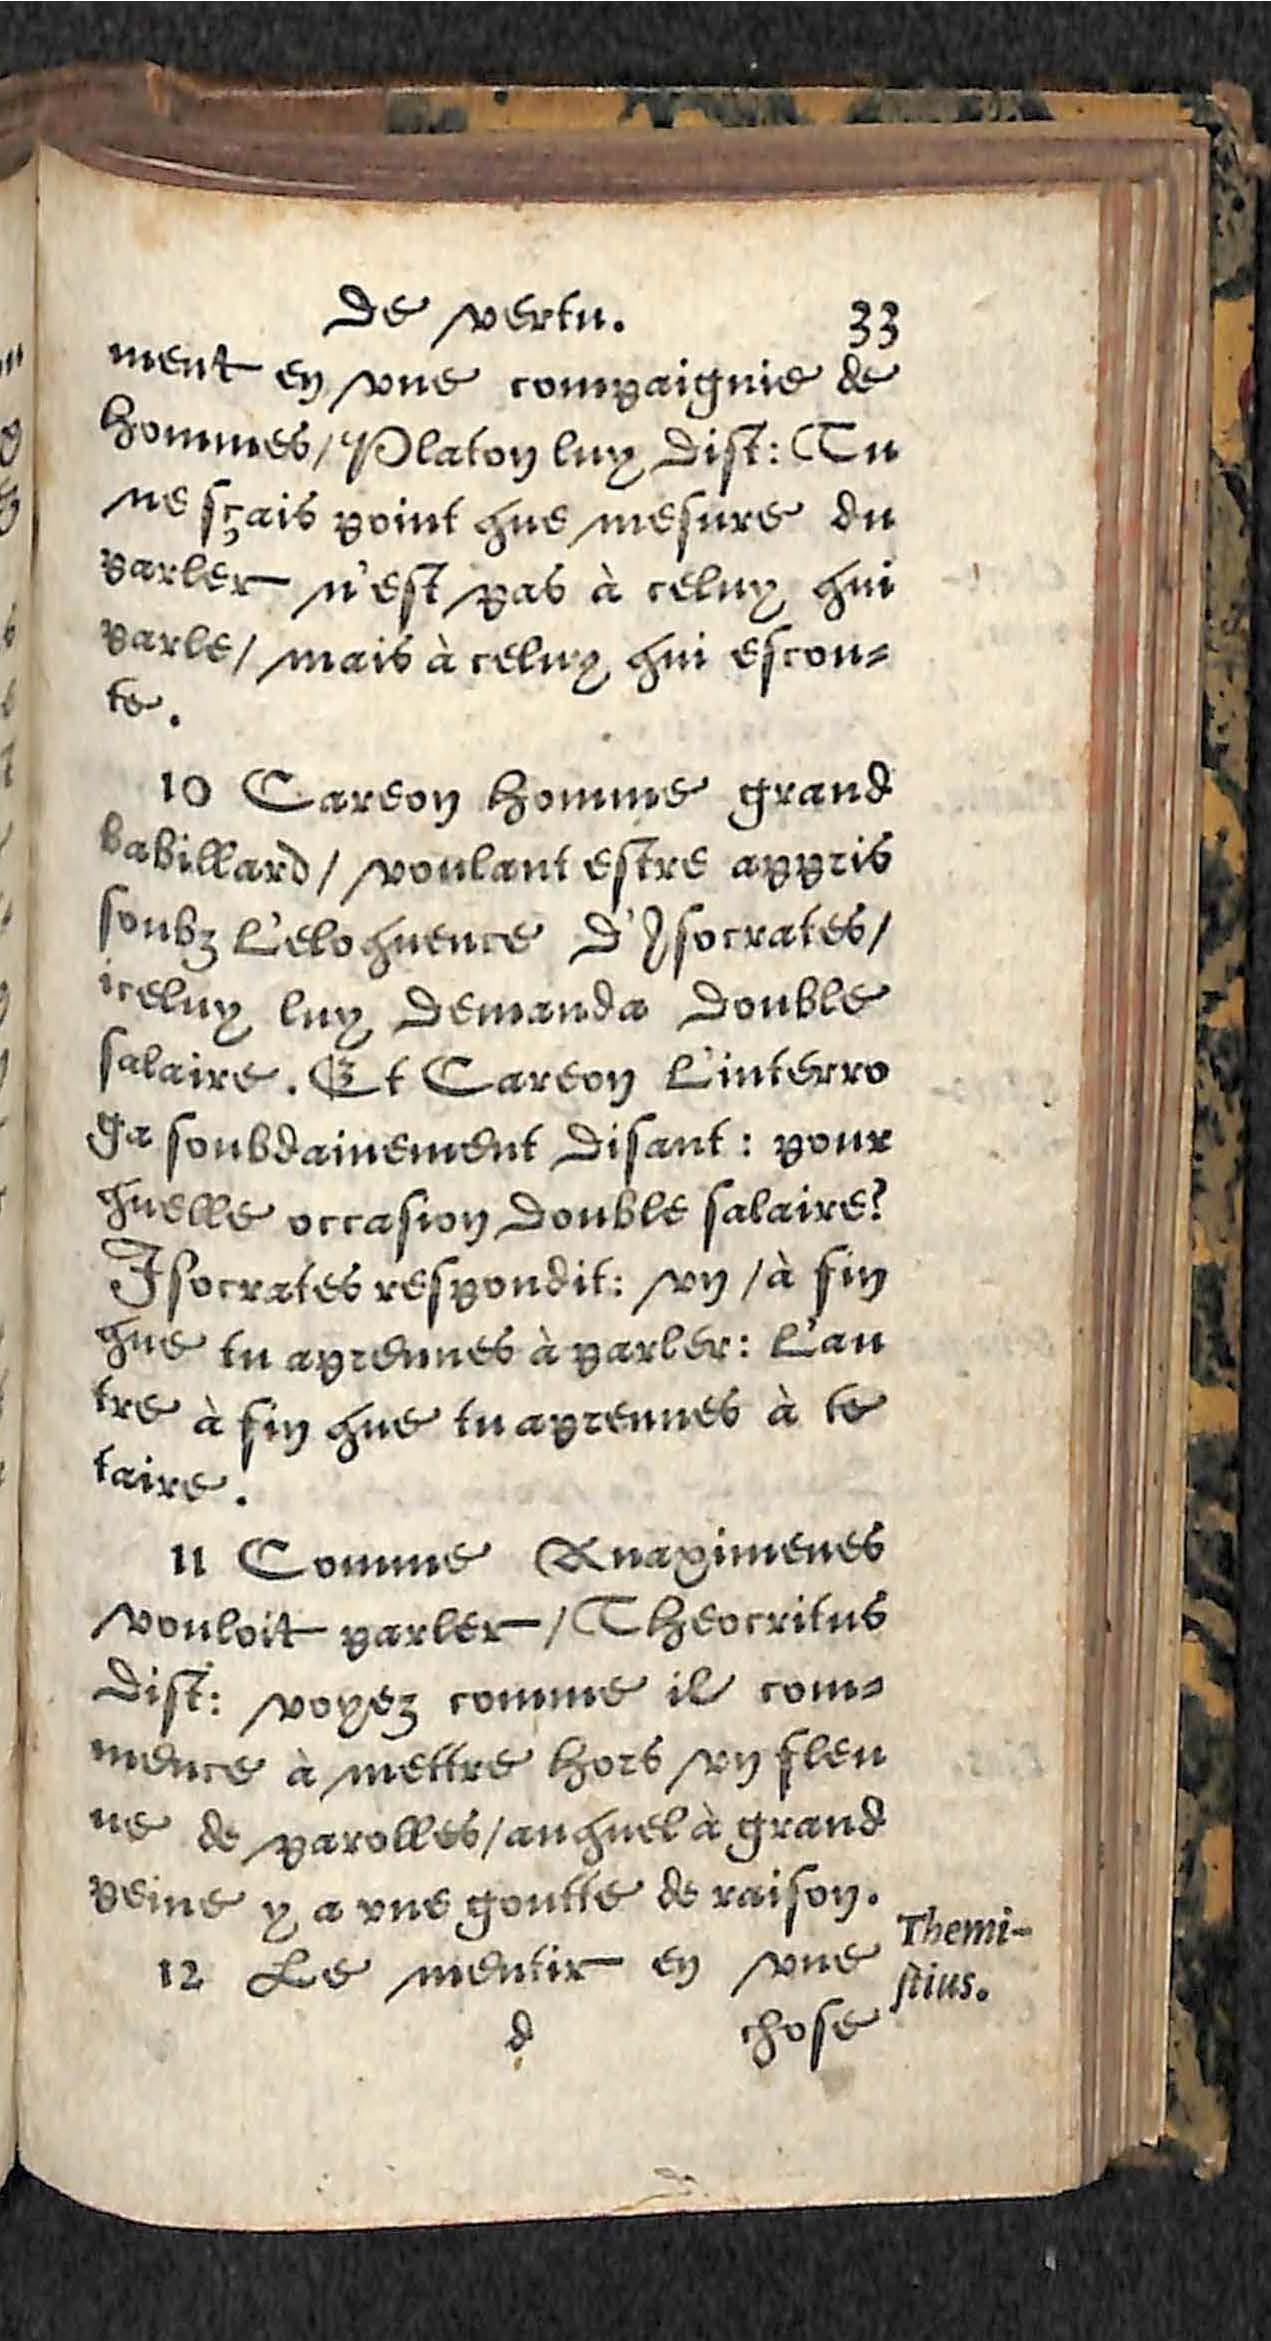 De vertu. 33
ment en vne compaignie de
hommes/Platon luy dist: Tu
ne sçais point que mesure du
parler n'est pas à celuy qui
parle/ mais à celuy qui escou-
te.
10 Careon homme grand
babillard/ voulant estre appris
soubz l'eloquence d'Isocrates/
iceluy luy demanda double
salaire. Et Careon l'interro
ga soubdainement disant: pour
quelle occasion double salaire?
Isocrates respondit: vn/à fin
que tu aprennes à parler: l'au
tre à fin que tu aprennes à te
taire.
11 Comme Anaximenes
vouloit parler/Theocritus
dist: voyez comme il com-
mence à mettre hors vn fleu
ue de parolles/auquel à grand
peine y a vne goutte de raison.
12 Le mentir en vne
Themi-
stius.
d chose